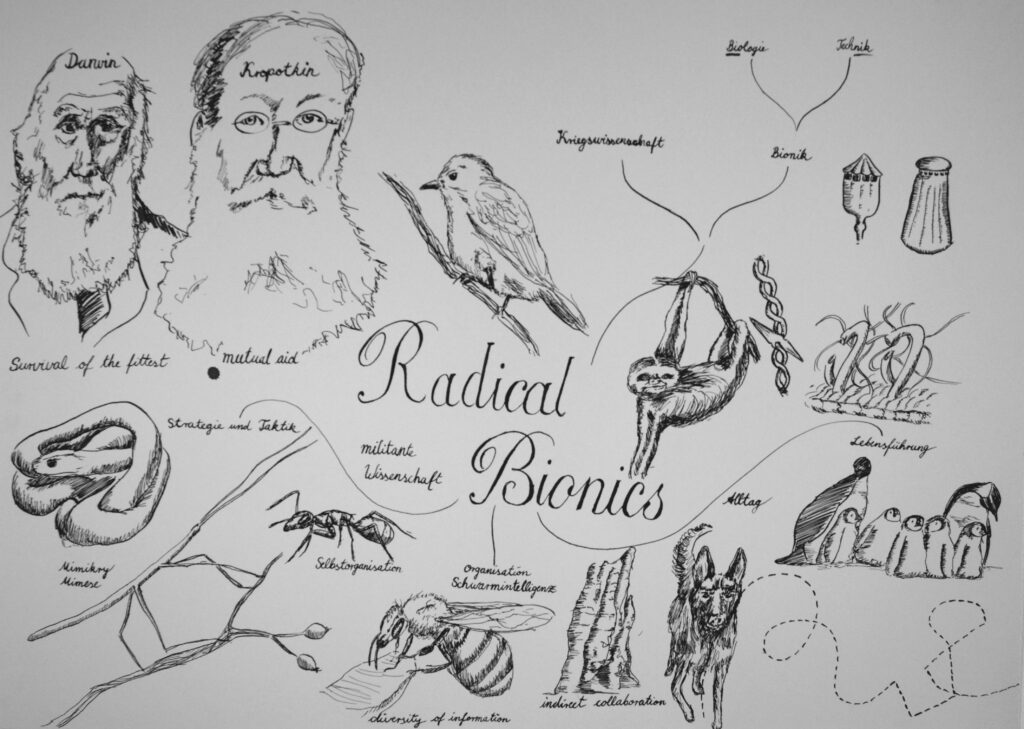 Darwin
Kropotkin
Biologie
Technik
Kriegswissenschaft
Bionik
Survival of the fittest
mutual aid
Radical
Bionics
Strategie und Taktik
militante
Wissenschaft
Lebensführung
Alltag
Mimikry
Mimese
Selbstorganisation
Organisation
Schwarmintelligenz
diversity of information
indirect collaboration